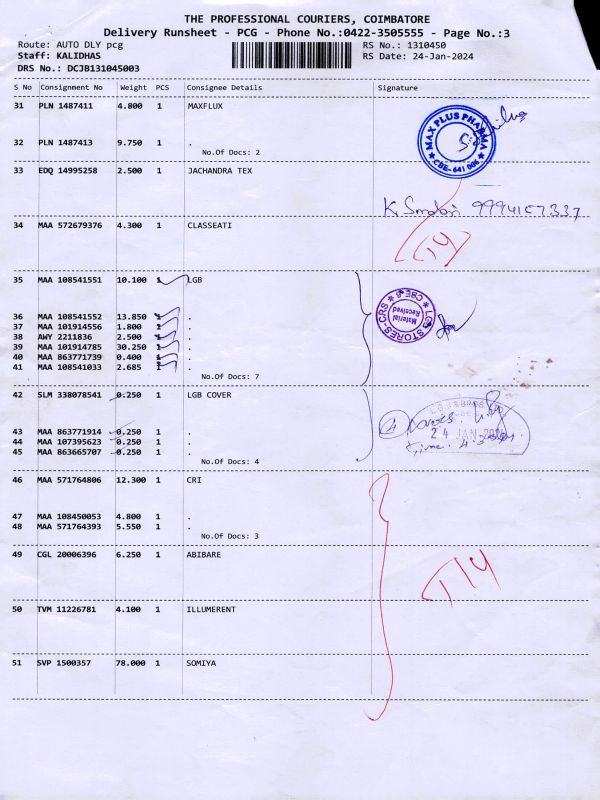 THE PROFESSIONAL COURIERS, COIMBATORE
Delivery Runsheet - PCG - Phone No.:0422-3505555 - Page No.:3
Route: AUTO DLY pcg RS No.: 1310450
Staff: KALIDHAS RS Date: 24-Jan-2024
DRS No.: DCJB131045003
S No Consignment No Weight PCS Consignee Details Signature
31 PLN 1487411 4.800 1 MAXFLUX
MAX PLUS PHARMA
CBE-641 006
32 PLN 1487413 9.750 1 .
No.Of Docs: 2
33 EDQ 14995258 2.500 1 JACHANDRA TEX
34 MAA 572679376 4.300 1 CLASSEATI
35 MAA 108541551 10.100 1 LGB
LG STORES-CRS
CBE-6
Material
Received
36 MAA 108541552 13.850 1 .
37 MAA 101914556 1.800 1 .
38 AWY 2211836 2.500 1 .
39 MAA 101914785 30.250 1 .
40 MAA 863771739 0.400 1 .
41 MAA 108541033 2.685 1 .
No.Of Docs: 7
42 SLM 338078541 0.250 1 LGB COVER
24 JAN
43 MAA 863771914 0.250 1 .
44 MAA 107395623 0.250 1 .
45 MAA 863665707 0.250 1 .
No.Of Docs: 4
46 MAA 571764806 12.300 1 CRI
47 MAA 108450053 4.800 1 .
48 MAA 571764393 5.550 1 .
No.Of Docs: 3
49 CGL 20006396 6.250 1 ABIBARE
50 TVM 11226781 4.100 1 ILLUMERENT
51 SVP 1500357 78.000 1 SOMIYA